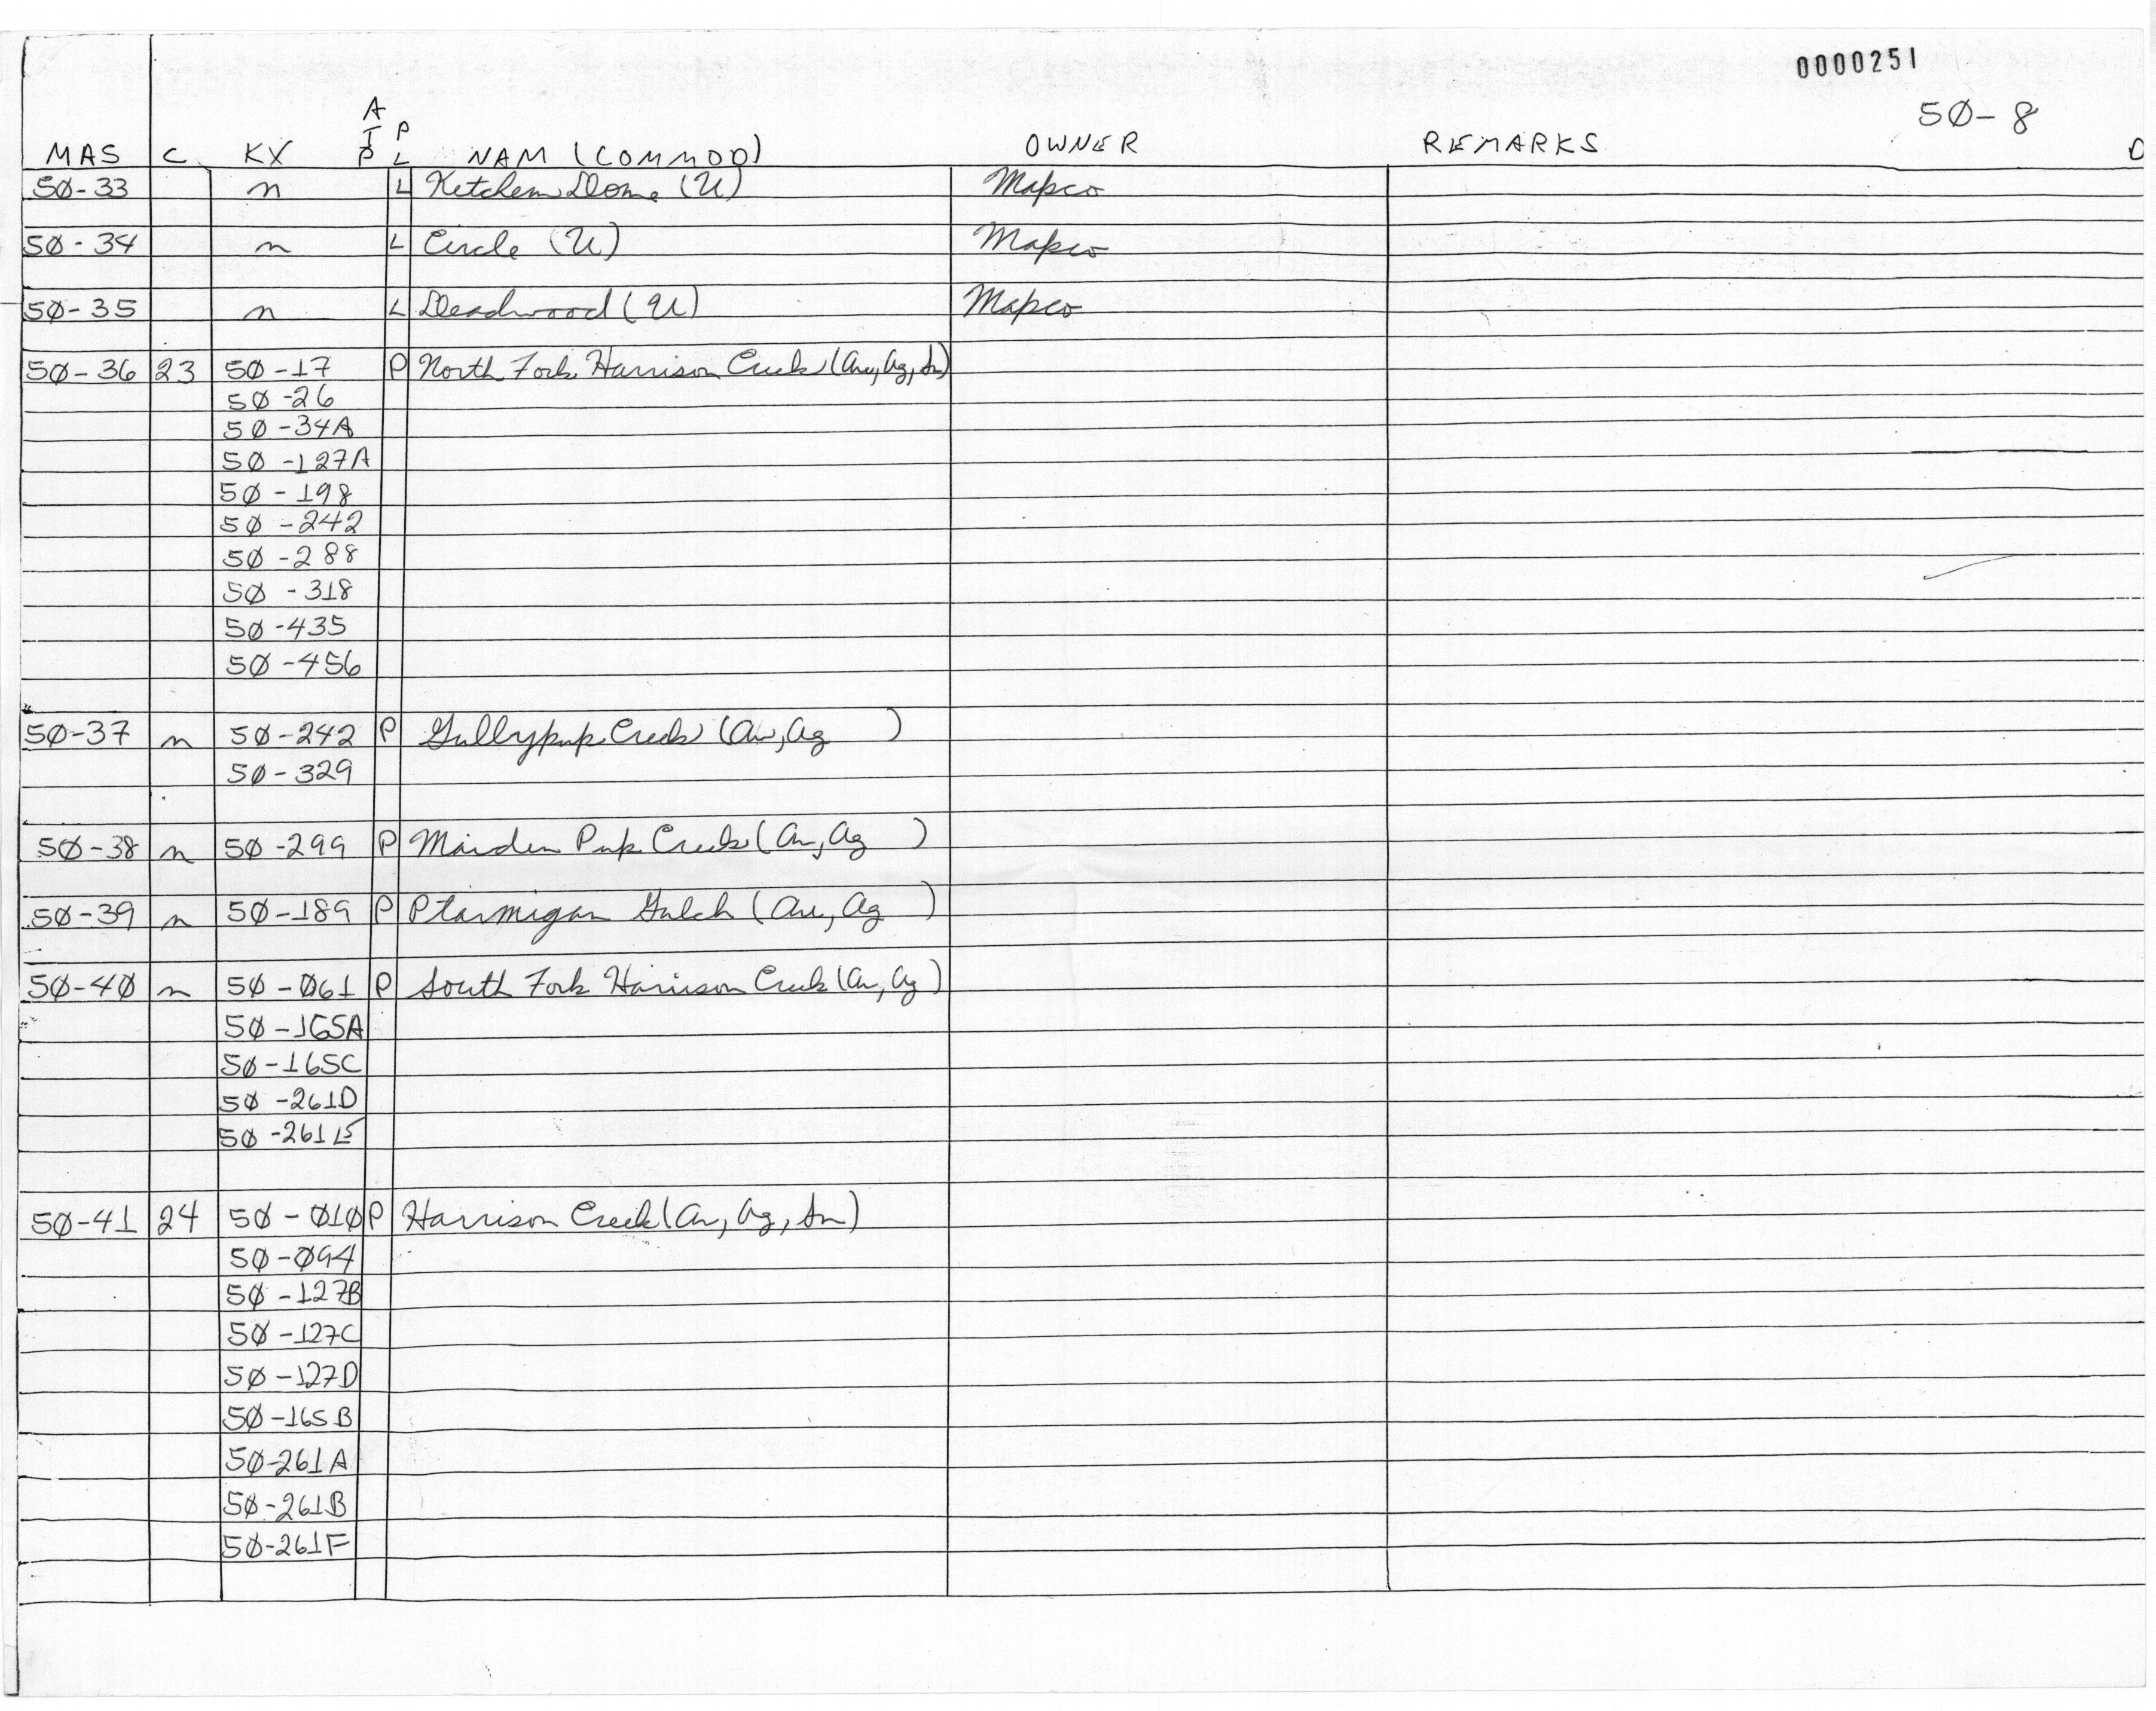 0000251
50-8
MAS C KX ATP PL NAM (COMMOD) OWNER REMARKS D
50-33 n L Ketchem Dome (U) Mapco
50-34 n L Circle (U) Mapco
50-35 n L Deadwood (U) Mapco
50-36 23 50-17 P North Fork Harrison Creek (Au, Ag, Sn)
50-26
50-34A
50-127A
50-198
50-242
50-288
50-318
50-435
50-456
50-37 n 50-242 P Gullypup Creek (Au, Ag )
50-329
50-38 n 50-299 P Maiden Pup Creek (Au, Ag )
50-39 n 50-189 P Ptarmigan Gulch (Au, Ag )
50-40 n 50-061 P South Fork Harrison Creek (Au, Ag)
50-165A
50-165C
50-261D
50-261E
50-41 24 50-010 P Harrison Creek (Au, Ag, Sn)
50-094
50-127B
50-127C
50-127D
50-165B
50-261A
50-261B
50-261F